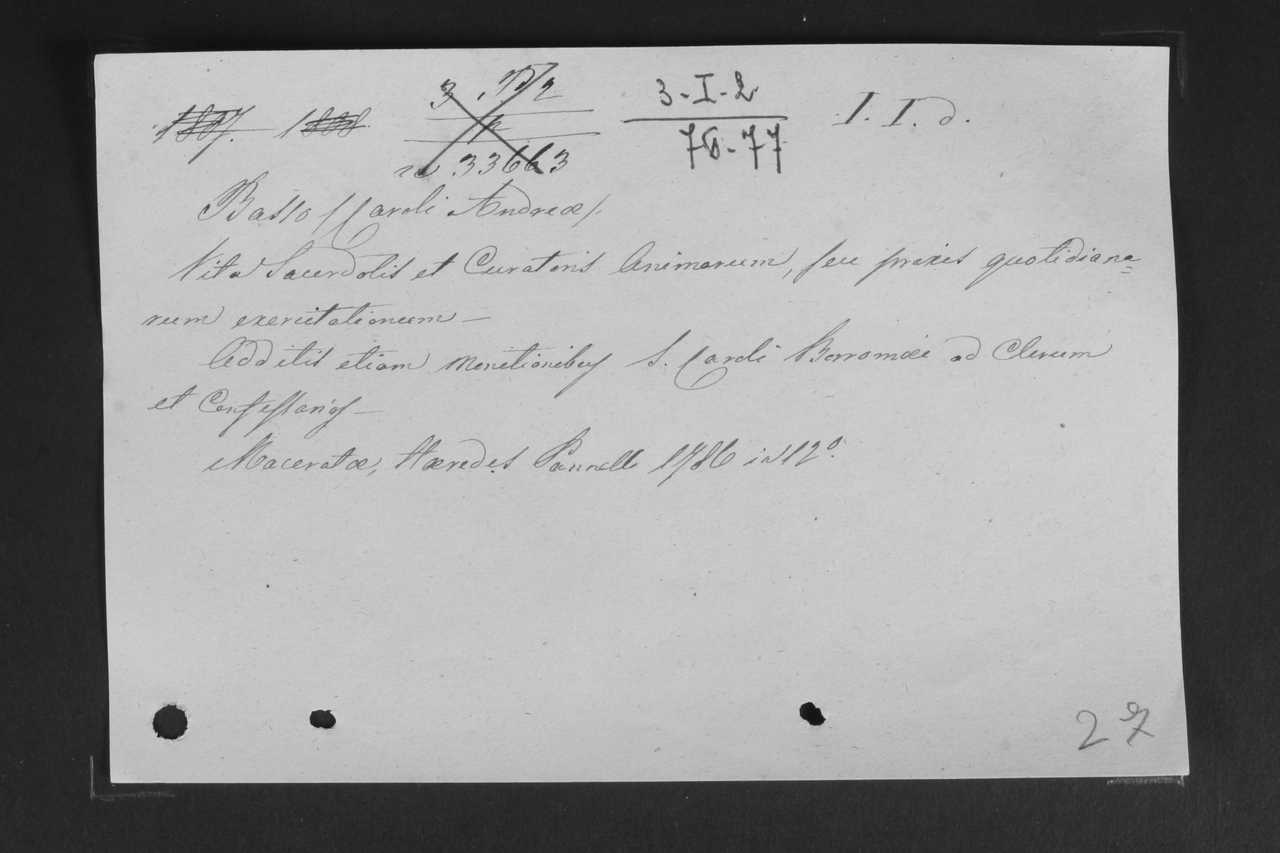 1887. 1888 3 . 2 3-I-2 I. I. d.
76-77
33663
Basso (Caroli Andreæ).
Vita Sacerdotis et Curatoris Animarum, seu praxis quotidiana=
rum exercitationum —
Additis etiam monitionibus S. Caroli Borromæi ad Clerum
et Confessarios —
Maceratæ, Hæredes Pannelli 1786 in 12º.
27